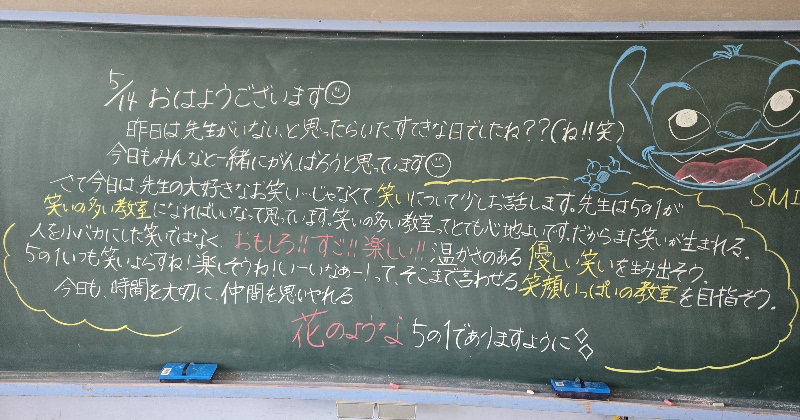 5/14 おはようございます
昨日は先生がいない、と思ったらいた、すてきな日でしたね??(ね!!笑)
今日もみんなと一緒にがんばろうと思っています
さて今日は、先生の大好きなお笑い…じゃなくて、笑いについて少しお話します。先生は5の1が
笑いの多い教室になればいいなって思っています。笑いの多い教室ってとても心地よいです。だからまた笑いが生まれる。
人を小バカにした笑いではなく、おもしろ!!すご!!楽しい!!温かさのある優しい笑いを生み出そう。
5の1いつも笑いよらすね!楽しそうね!いーいなぁー!って、そこまで言わせる笑顔いっぱいの教室を目指そう。
今日も、時間を大切に、仲間を思いやれる
花のような5の1でありますように
SMI